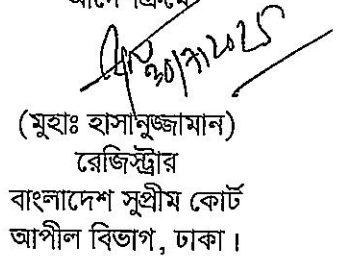 (মুহাঃ হাসানুজ্জামান)
রেজিস্ট্রার
বাংলাদেশ সুপ্রীম কোর্ট
আপীল বিভাগ, ঢাকা।